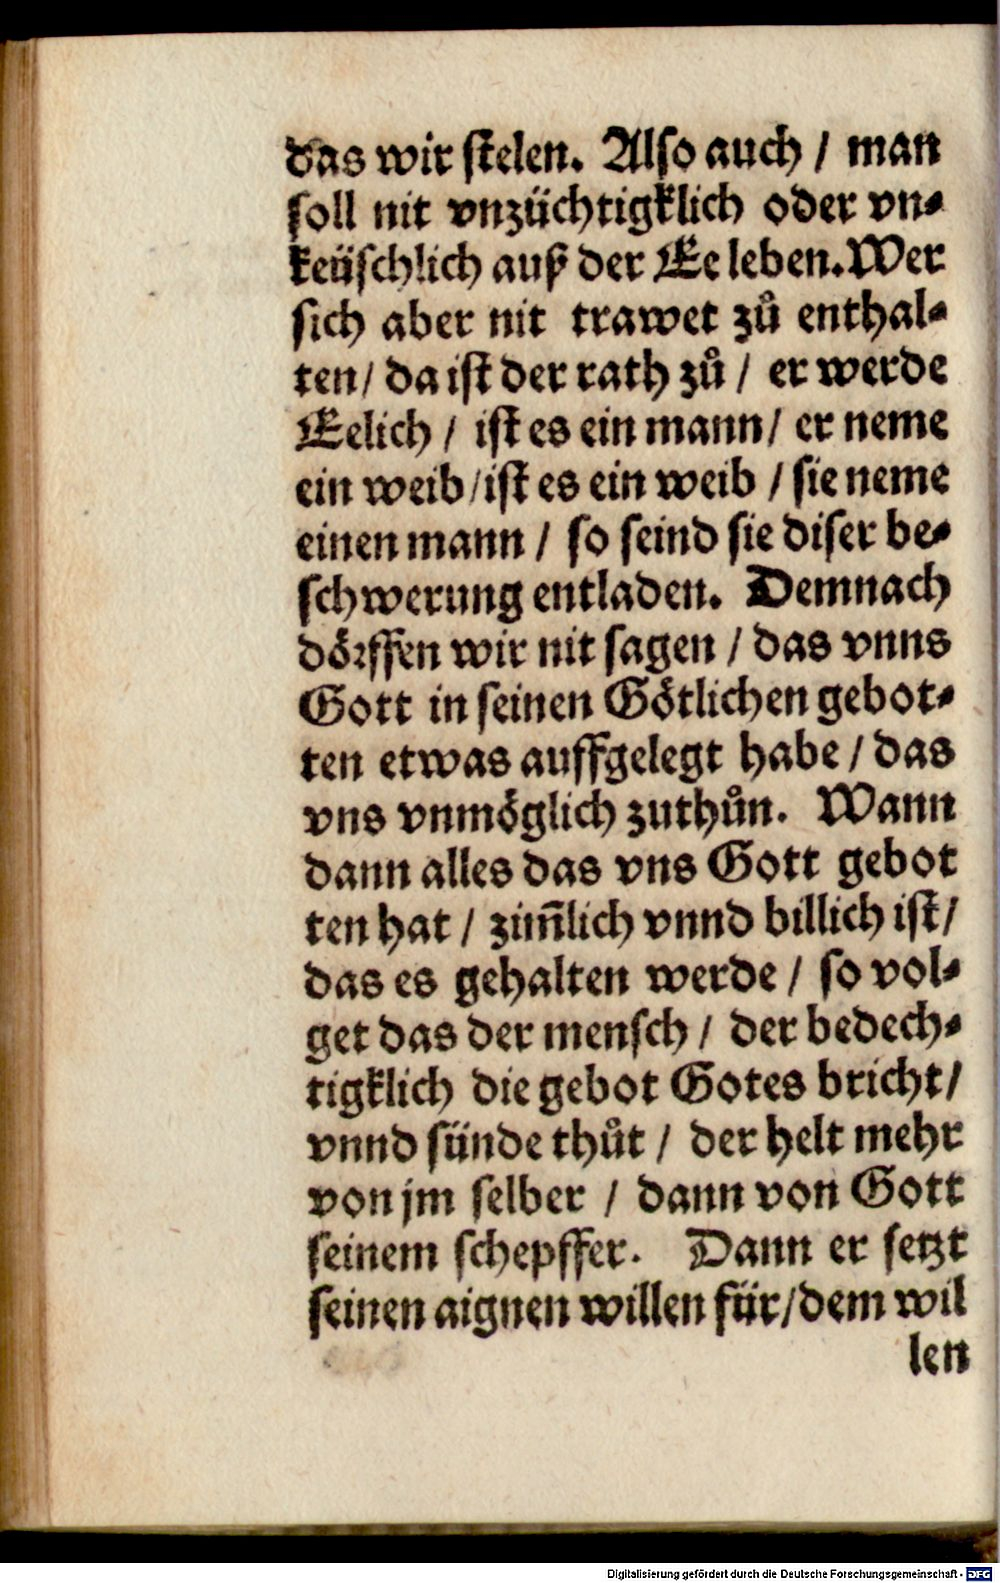 das wir ſtelen. Alſo auch / man
ſoll nit vnzüchtigklich oder vn⸗
keüſchlich auß der Ee leben. Wer
ſich aber nit trawet zů enthal⸗
ten / da iſt der rath zů / er werde
Eelich / iſt es ein mann / er neme
ein weib / iſt es ein weib / ſie neme
einen mann / ſo ſeind ſie diſer be⸗
ſchwerung entladen. Demnach
dörffen wir nit ſagen / das vnns
Gott in ſeinen Götlichen gebot⸗
ten etwas auffgelegt habe / das
vns vnmöglich zuthůn. Wann
dann alles das vns Gott gebot
ten hat / zim̃lich vnnd billich iſt /
das es gehalten werde / ſo vol⸗
get das der menſch / der bedech⸗
tigklich die gebot Gotes bricht /
vnnd ſünde thůt / der helt mehr
von jm ſelber / dann von Gott
ſeinem ſchepffer. Dann er ſetzt
ſeinen aignen willen für / dem wil
len
Digitalisierung gefördert durch die Deutsche Forschungsgemeinschaft - DFG